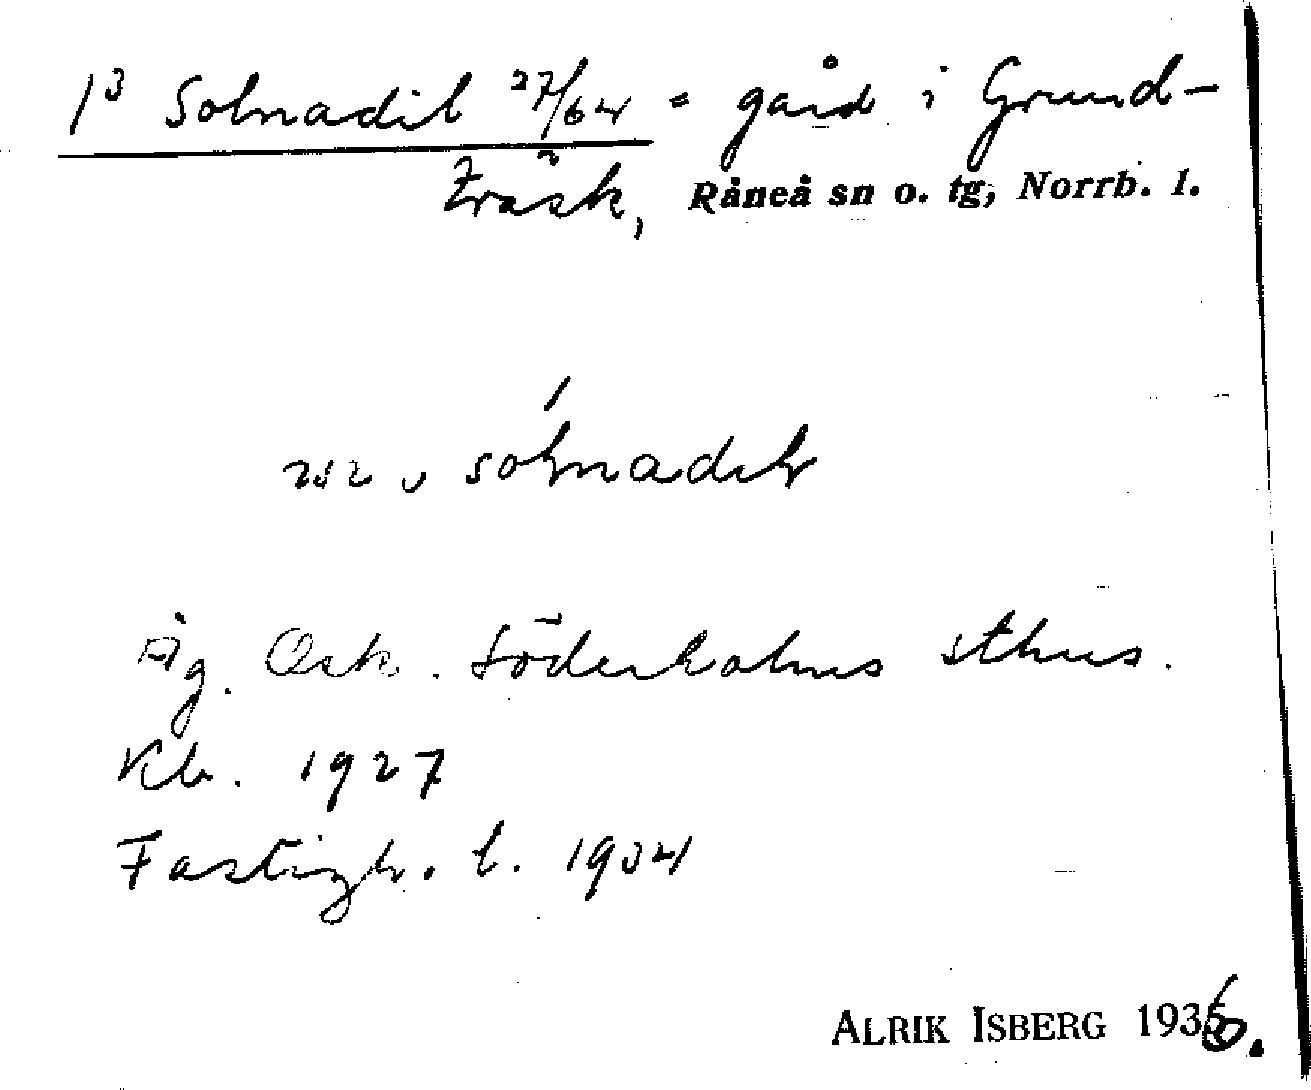 1³ Solnadil 27/64 = gård i Grund-
träsk, Råneå sn o. tg, Norrb. l.
solnadil
Äg. Osk. Söderholms sthus.
Kb. 1927
Fastigh. l. 1934
ALRIK ISBERG 1936.